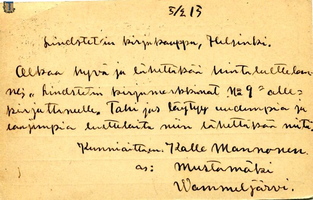 5/2 13
Lindstetin kirjakauppa, Helsinki.
Olkaa hyvä ja lähettäkää hintaluettelon-
ne, „Lindstetin kirjamarkkinat № 9" alle-
kirjuttaneelle. Tahi jos löytyy uudempia ja
laajempia luetteloita niin lähettäkää niitä.
Kunnioittaen. Kalle Mannonen.
as: Mustamäki
Wammeljärvi.